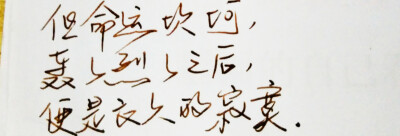 但命运坎坷，
轰々烈々之后，
便是长久的寂寞．